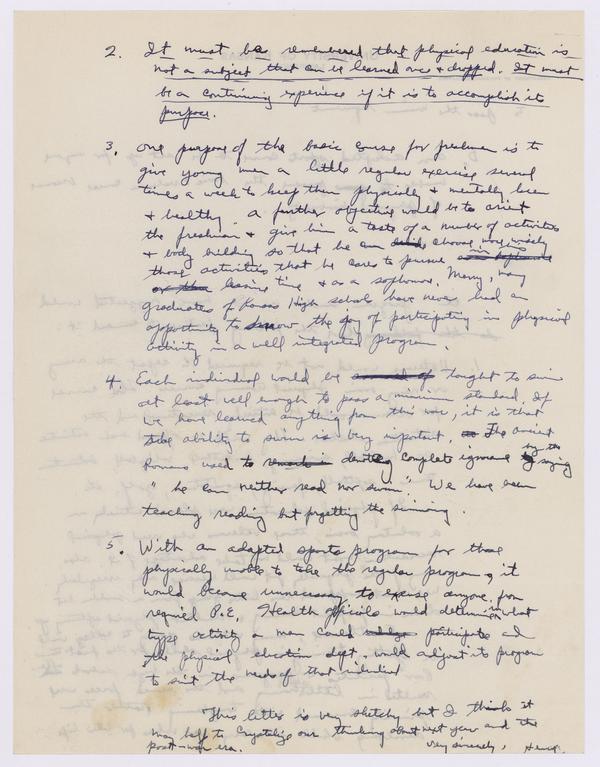 2. It must be remembered that physical education is
not a subject that can be learned once & dropped. It must
be a continuing experience if it is to accomplish its
purpose.
3. One purpose of the basic course for freshmen is to
give young men a little regular exercise several
times a week to keep them physically & mentally keen
& healthy. A further objective would be to orient
the freshman & give him a taste of a number of activities
& body building so that he can choose more wisely
those activities that he cares to pursue in his
leisure time & as a sophomore. Many, many
graduates of Kansas High schools have never had an
opportunity to know the joy of participating in physical
activity in a well integrated program.
4. Each individual would be taught to swim
at least well enough to pass a minimum standard. If
we have learned anything from this war, it is that
the ability to swim is very important. The ancient
Romans used to denote complete ignorance by saying
"he can neither read nor swim". We have been
teaching reading but forgetting the swimming.
5. With an adapted sports program for those
physically unable to take the regular program, it
would become unnecessary to excuse anyone from
required P.E. Health officials would determine what
type activity a man could participate in and
the physical education dept. would adjust its program
to suit the needs of that individual
This letter is very sketchy but I think it
may help to crystalize our thinking about next year and the
post-war era. Very sincerely, Henry.